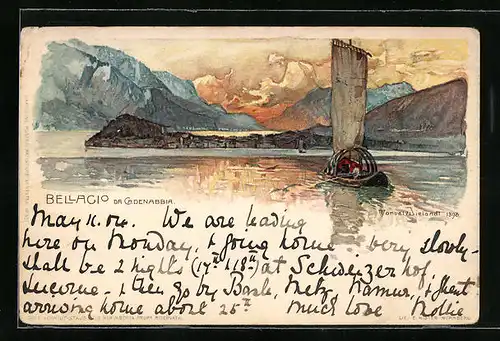 BELLAGIO DA CADENABBIA.
Manuel Wielandt 1898.
May 11. 04. We are leading
here on Monday, & going home very slowly -
shall be 2 nights (17th & 18th) at Schweizer hof,
Lucerne - & then go by Basle, Metz, Namur, &
arriving home about 25th much love Mollie